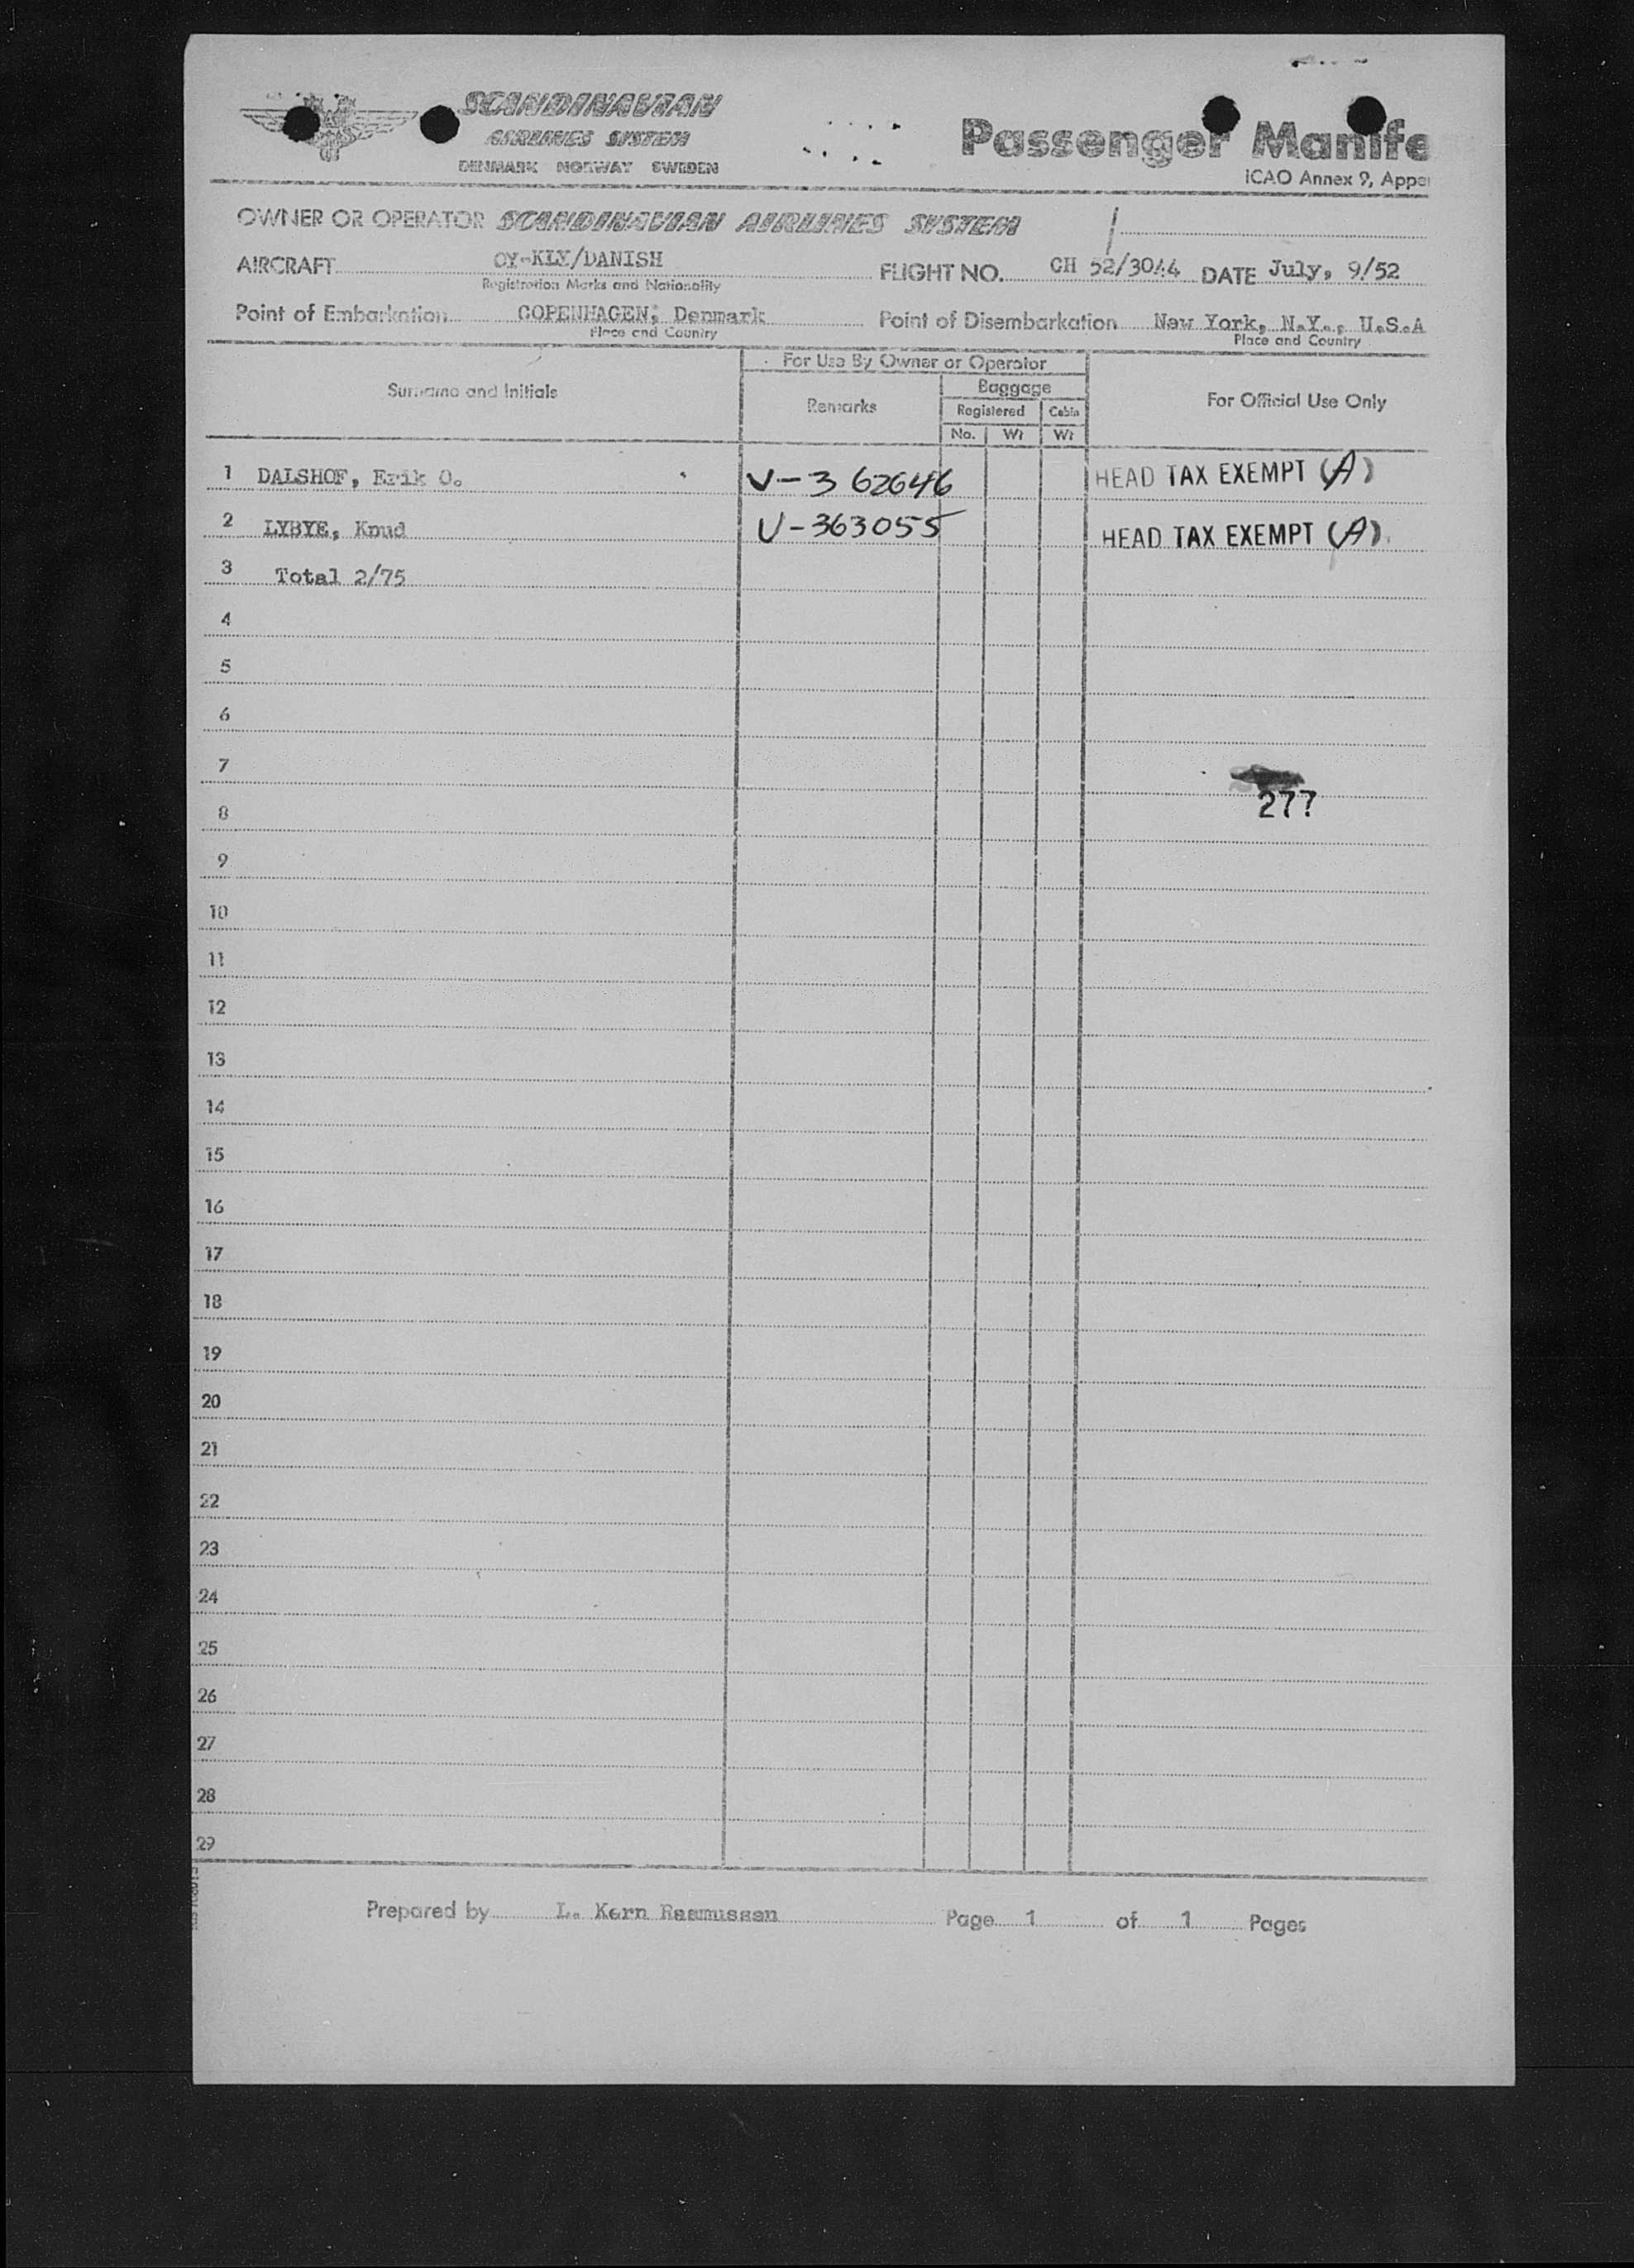 SCANDINAVIAN
AIRLINES SYSTEM
DENMARK NORWAY SWEDEN
Passenger Manife
ICAO Annex 9, Appe
OWNER OR OPERATOR SCANDINAVIAN AIRLINES SYSTEM
AIRCRAFT OY-KLY/DANISH FLIGHT NO. CH 52/3044 DATE July, 9/52
Registration Marks and Nationality
Point of Embarkation COPENHAGEN, Denmark Point of Disembarkation New York, N.Y., U.S.A
Place and Country Place and Country
For Use By Owner or Operator
Surname and Initials Remarks Baggage For Official Use Only
Registered Cabin
No. Wt Wt
1 DALSHOF, Erik O. V-362646 HEAD TAX EXEMPT (A)
2 LYBYE, Knud V-363055 HEAD TAX EXEMPT (A)
3 Total 2/75
4
5
6
7
277
8
9
10
11
12
13
14
15
16
17
18
19
20
21
22
23
24
25
26
27
28
29
Prepared by L. Kern Rasmussen Page 1 of 1 Pages